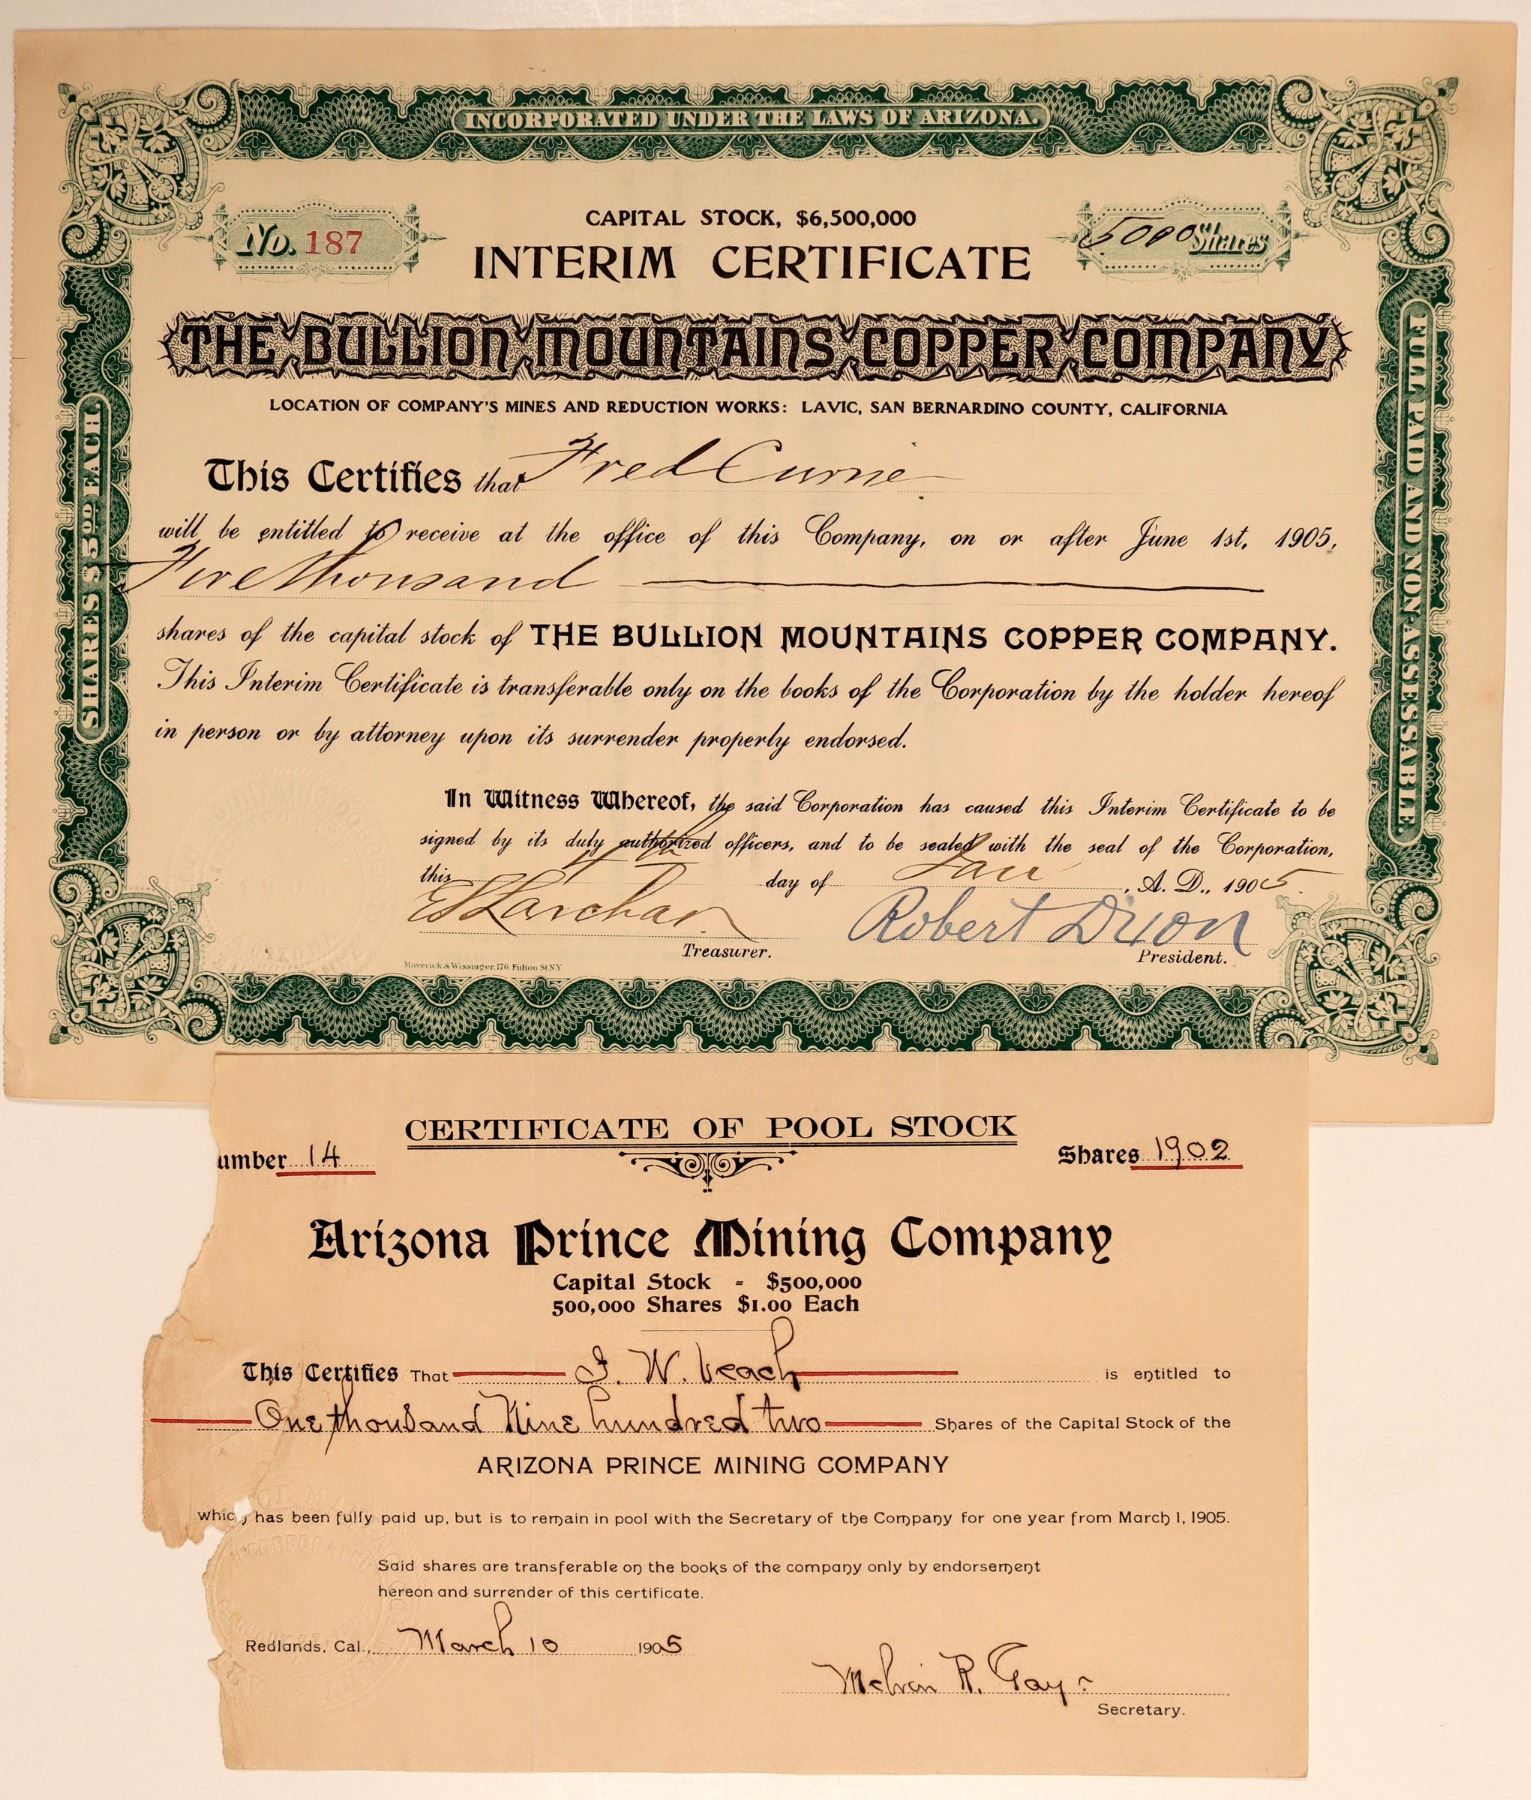 INCORPORATED UNDER THE LAWS OF ARIZONA.
No. 187
CAPITAL STOCK, $6,500,000
5000 Shares
INTERIM CERTIFICATE
THE BULLION MOUNTAINS COPPER COMPANY
LOCATION OF COMPANY'S MINES AND REDUCTION WORKS: LAVIC, SAN BERNARDINO COUNTY, CALIFORNIA
SHARES $5.00 EACH
FULL PAID AND NON-ASSESSABLE.
This Certifies that Fred Currie
will be entitled to receive at the office of this Company, on or after June 1st, 1905,
Five thousand
shares of the capital stock of THE BULLION MOUNTAINS COPPER COMPANY.
This Interim Certificate is transferable only on the books of the Corporation by the holder hereof
in person or by attorney upon its surrender properly endorsed.
In Witness Whereof, the said Corporation has caused this Interim Certificate to be
signed by its duly authorized officers, and to be sealed with the seal of the Corporation,
this day of Jan A. D., 1905.
Robert Dixon
Treasurer.
President.
Maverick & Wissinger, 176 Fulton St NY
CERTIFICATE OF POOL STOCK
umber 14
Shares 1902
Arizona Prince Mining Company
Capital Stock - $500,000
500,000 Shares $1.00 Each
This Certifies That J. W. Leach is entitled to
One thousand Nine hundred two Shares of the Capital Stock of the
ARIZONA PRINCE MINING COMPANY
which has been fully paid up, but is to remain in pool with the Secretary of the Company for one year from March 1, 1905.
Said shares are transferable on the books of the company only by endorsement
hereon and surrender of this certificate.
Redlands, Cal., March 10 1905
Melvin R. Gay
Secretary.